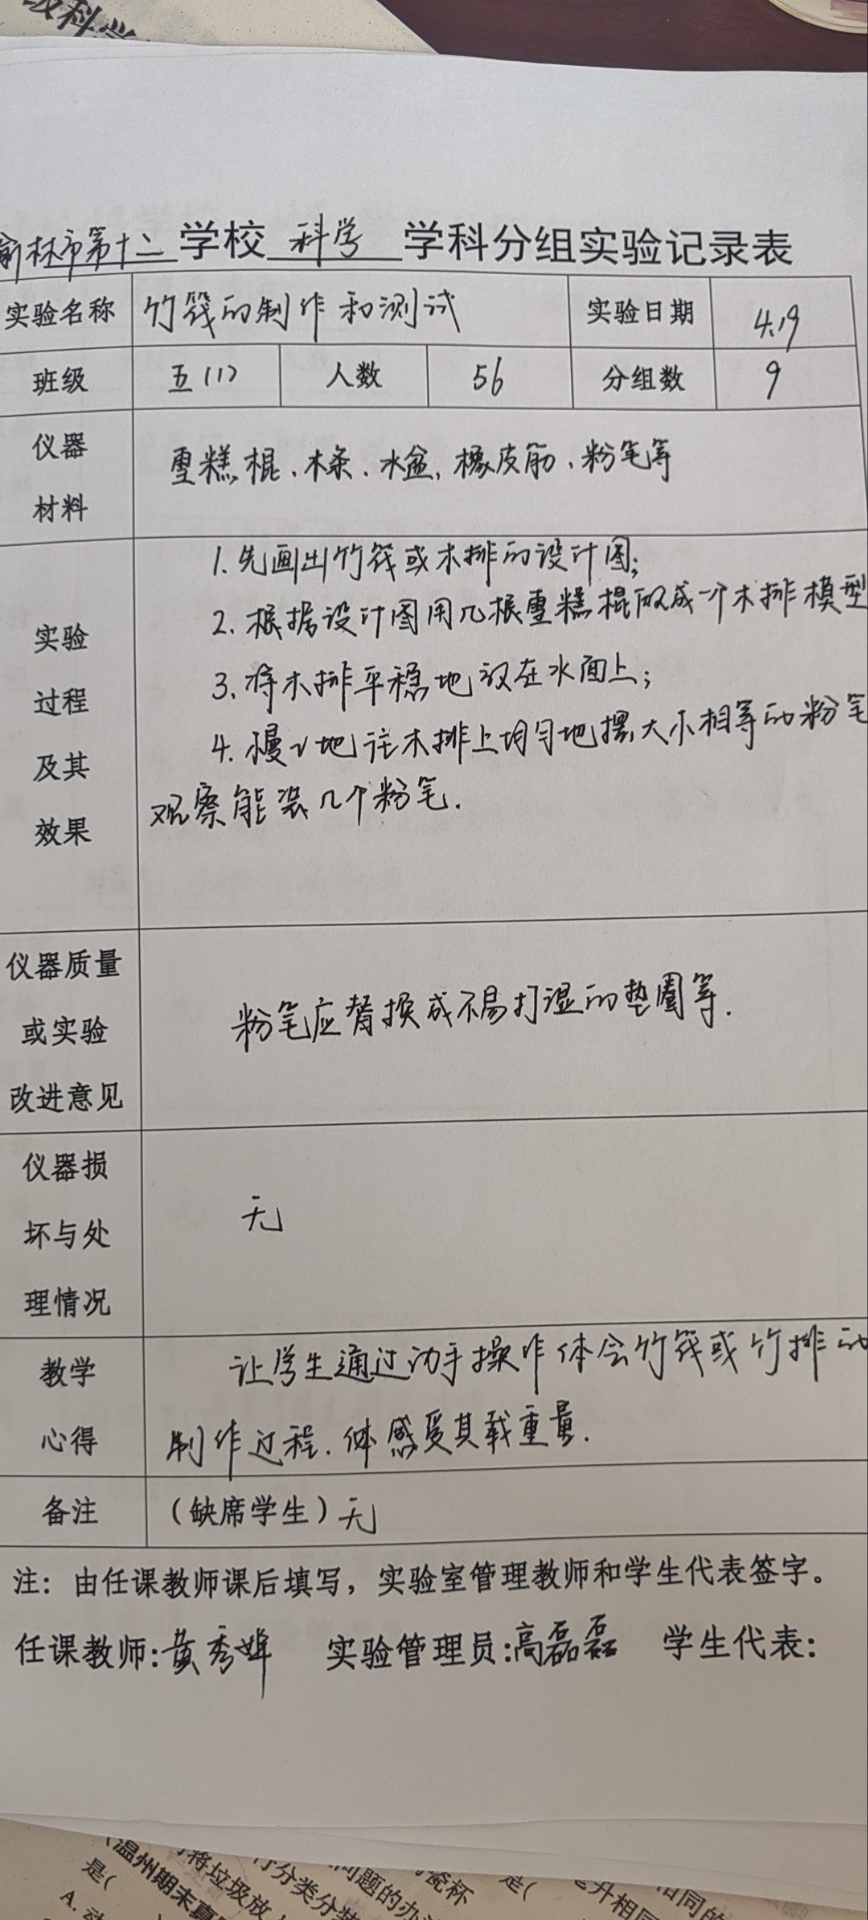 级科学
榆林市第十二学校 科学 学科分组实验记录表
实验名称 竹筏的制作和测试 实验日期 4.19
班级 五(1) 人数 56 分组数 9
仪器
材料
雪糕棍、木条、水盆、橡皮筋、粉笔等
实验
过程
及其
效果
1.先画出竹筏或木排的设计图;
2.根据设计图用几根雪糕棍做成一个木排模型
3.将木排平稳地放在水面上;
4.慢慢地往木排上均匀地摆大小相等的粉笔
观察能装几个粉笔.
仪器质量
或实验
改进意见
粉笔应替换成不易打湿的垫圈等.
仪器损
坏与处
理情况
无
教学
心得
让学生通过动手操作体会竹筏或竹排的
制作过程.体感受其载重量.
备注 (缺席学生)无
注：由任课教师课后填写，实验室管理教师和学生代表签字。
任课教师:黄秀婵 实验管理员:高磊磊 学生代表:
(温州期末真
是(
将垃圾放
行分类分装
问题的办
瓷杯
是(
升相同
相同的
A.